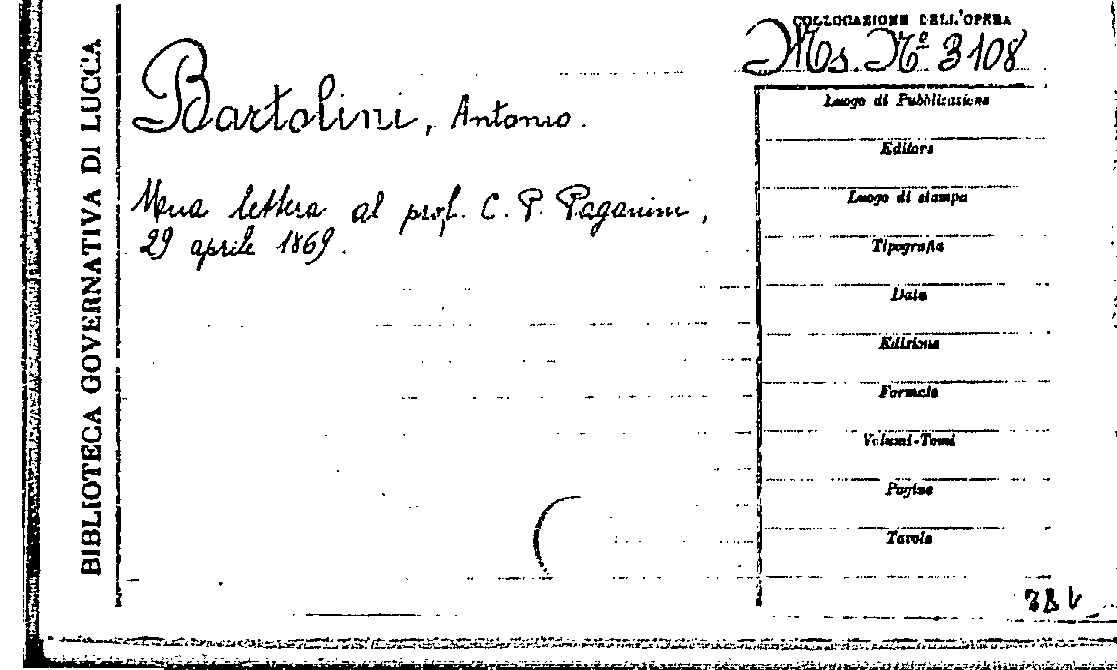 BIBLIOTECA GOVERNATIVA DI LUCCA
COLLOCAZIONE DELL'OPERA
Ms. Nº 3108
Bartolini, Antonio.
Una lettera al prof. C. P. Paganini,
29 aprile 1869.
Luogo di Pubblicazione
Editore
Luogo di stampa
Tipografia
Data
Edizione
Formato
Volumi-Tomi
Pagine
Tavole